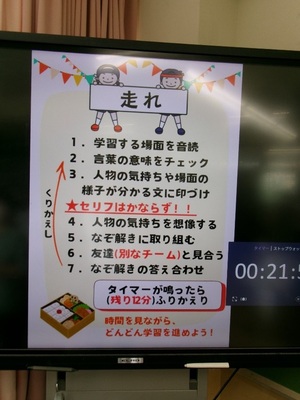 走れ
1．学習する場面を音読
2．言葉の意味をチェック
3．人物の気持ちや場面の
様子が分かる文に印づけ
★セリフはかならず！！
4．人物の気持ちを想像する
5．なぞ解きに取り組む
6．友達(別なチーム)と見合う
7．なぞ解きの答え合わせ
くりかえし
タイマーが鳴ったら
(残り12分)ふりかえり
時間を見ながら、
どんどん学習を進めよう！
00:21:5